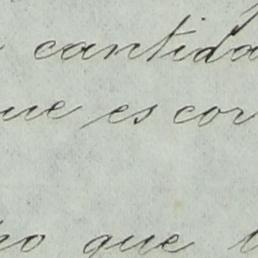 cantida
ue es cor
ho que